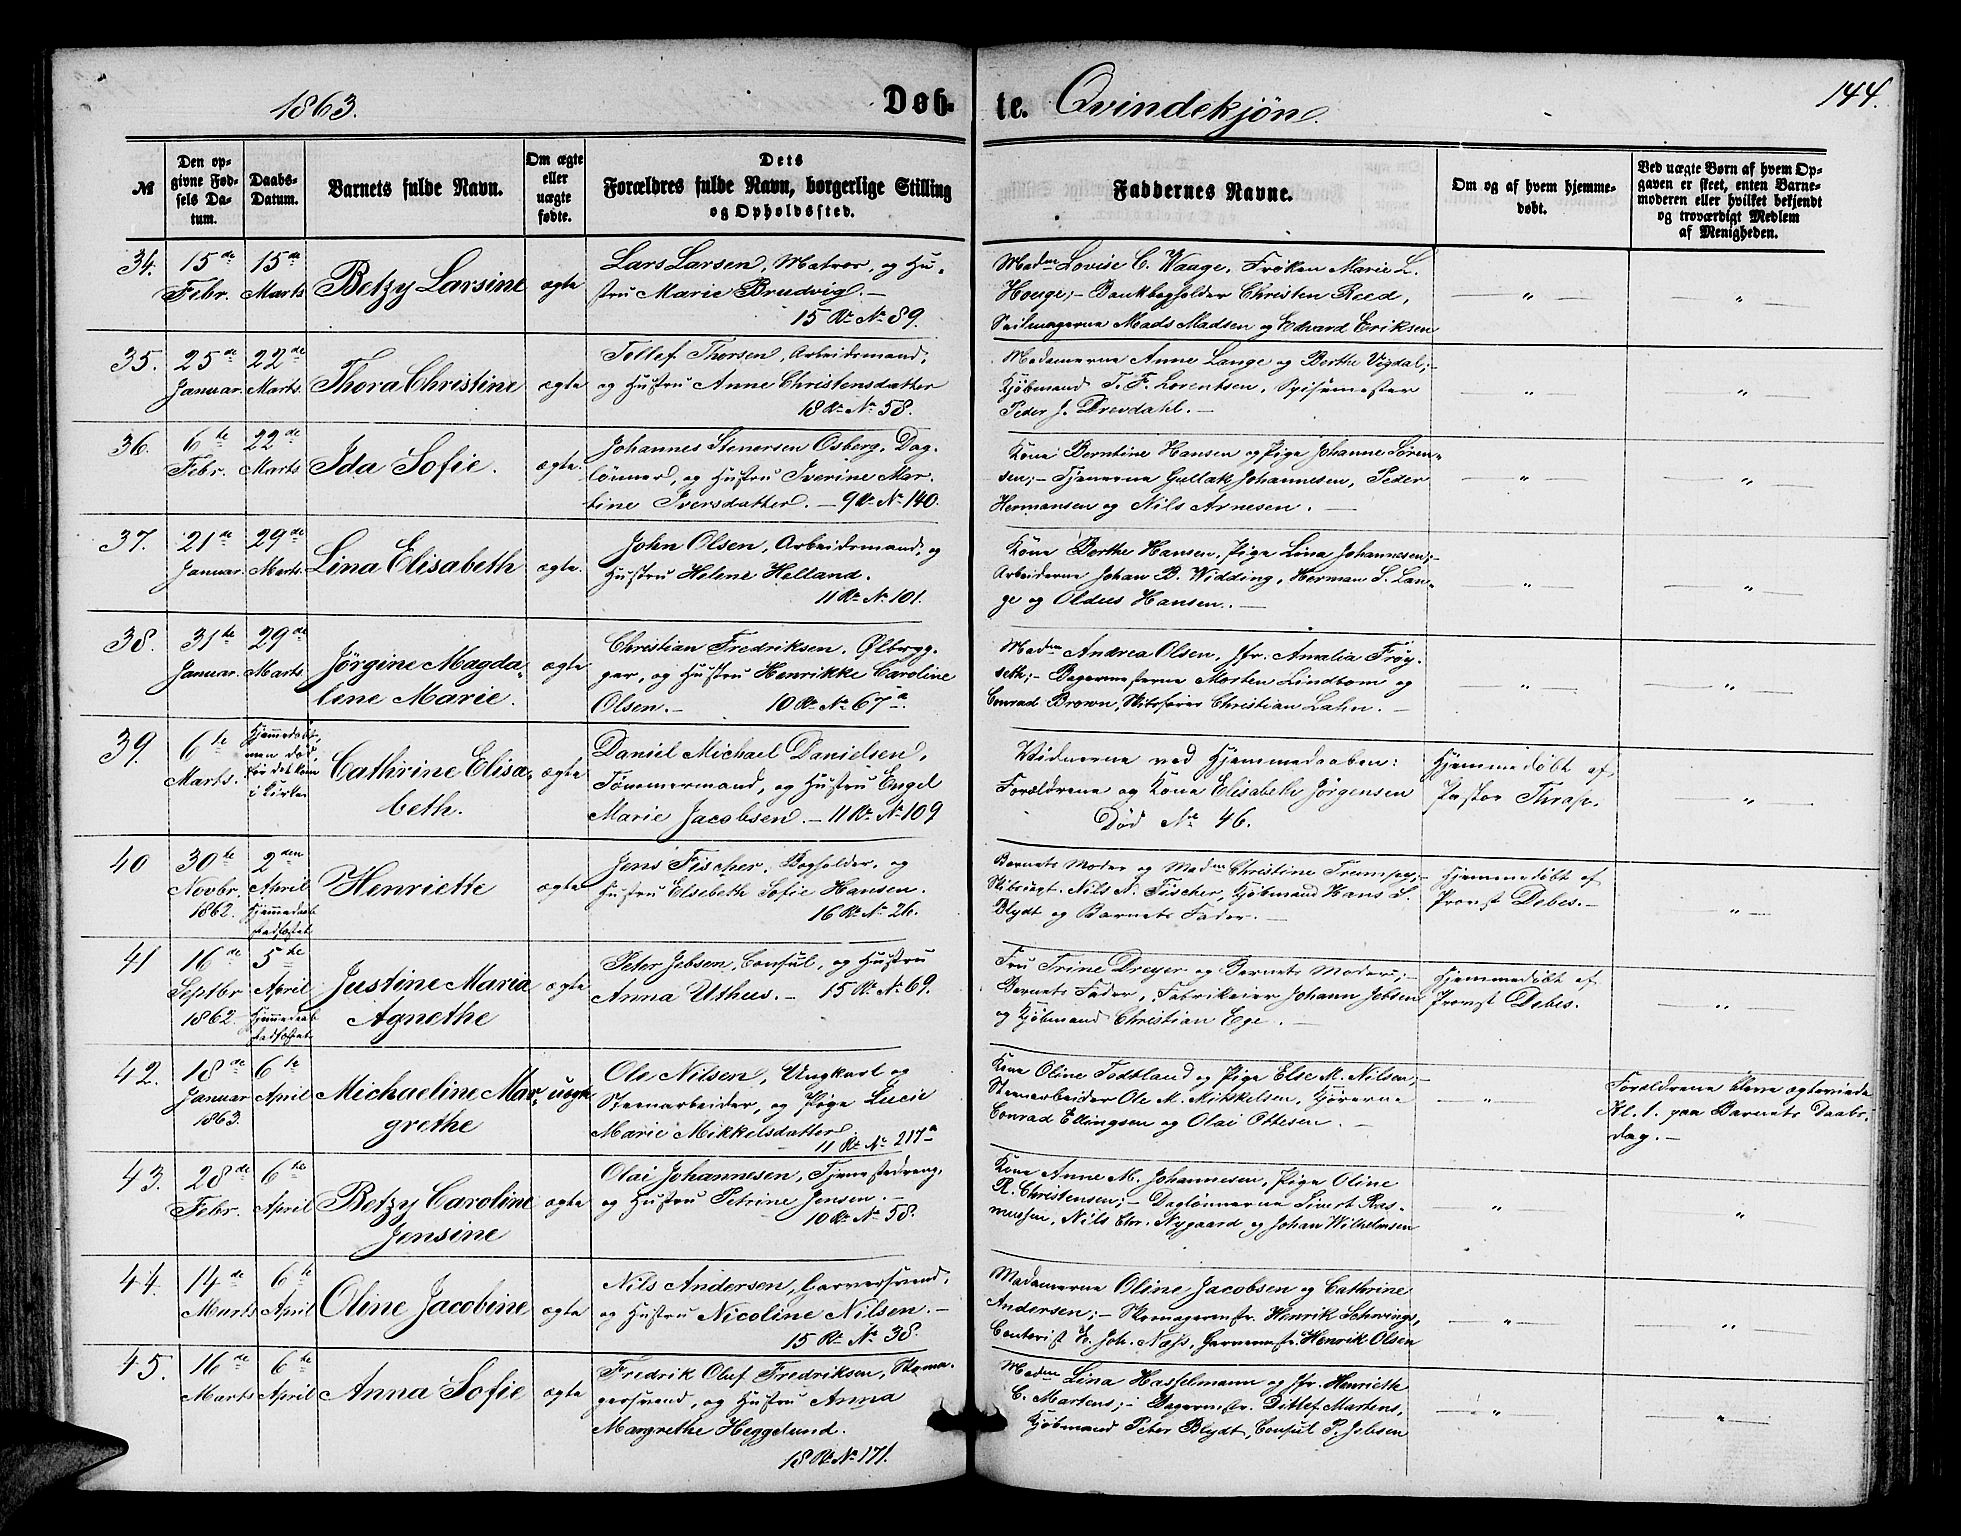 1863.
Døb-
te. Qvindekjøn.
144.
№
Den op-
givne Fød-
sels Da-
tum.
Daabs-
Datum.
Barnets fulde Navn.
Om ægte
eller
uægte
fødte.
Dets
Forældres fulde Navn, borgerlige Stilling
og Opholdssted.
Faddernes Navne.
Om og af hvem hjemme-
døbt.
Ved uægte Børn af hvem Op-
gaven er skeet, enten Barne-
moderen eller hvilket bekjendt
og troværdigt Medlem
af Menigheden.
34.
15de
Febr.
15de
Marts
Betzy Larsine
ægte
Lars Larsen, Matros, og Hu-
stru Marie Brudvig. —
15 R. № 89.
Madm Lovise C. Waage, Frøken Marie L.
Houge; - Bankbogholder Christen Reed,
Seilmagerne Mads Madsen og Edvard Eriksen
35.
25de
Januar.
22de
Marts.
Thora Christine
ægte
Tollef Thorsen, Arbeidsmand,
og Hustru Anne Christensdatter
18 R. № 58.
Madamerne Anne Lange og Berthe Vigdal; -
Kjøbmand T. F. Lorentsen, Spisemester
Peder J. Drevdahl. —
36.
6te
Febr.
22de
Marts
Ida Sofie.
ægte.
Johannes Stenersen Osberg, Dag-
lønner, og Hustru Iverine Mar-
tine Iversdatter. — 9 R. № 140.
Kone Berntine Hansen og Pige Johanne Søren-
sen; - Tjenerne Gullak Johannesen, Peder
Hermansen og Nils Arnesen. —
37.
21de
Januar.
29de
Marts.
Lina Elisabeth
ægte.
John Olsen, Arbeidsmand, og
Hustru Helene Helland.
11 R. № 101.
Kone Berthe Hansen, Pige Lina Johannesen; -
Arbeiderne Johan B. Widding, Herman S. Lan-
ge og Oldus Hansen. —
38.
31te
Januar.
29de
Marts.
Jørgine Magda-
lene Marie.
ægte
Christian Fredriksen, Ølbryg-
ger, og Hustru Henrikke Caroline
Olsen. — 10 R. № 67a.
Madm Andrea Olsen, Jfr. Amalia Frøy-
seth; - Bagermesterne Morten Lindbom og
Conrad Brown, Skibsfører Christian Lahn. —
39.
6te
Marts.
Hjemmedøbt,
men død
før det kom
i Kirke.
Cathrine Elisa-
beth.
ægte
Daniel Michael Danielsen,
Tømmermand, og Hustru Engel
Marie Jacobsen. — 11 R. № 109
Vidnerne ved Hjemmedaaben:
Forældrene og Kone Elisabeth Jørgensen
Død № 46.
Hjemmedøbt af
Pastor Thrap.
40
30te
Novbr.
1862.
2den
April
Hjemmedaab
stadfæstet
Henriette
ægte
Jens Fischer, Bogholder, og
Hustru Elsebeth Sofie Hansen.
16 R. № 26.
Barnets Moder og Madm Christine Trumpy; -
Skibsregt. Nils N. Fischer, Kjøbmand Hans L.
Blydt og Barnets Fader. —
Hjemmedøbt af
Provst Debes. —
41
16de
Septbr
1862.
5te
April
Hjemmedaab
stadfæstet.
Justine Maria
Agnethe
ægte
Peter Jebsen, Consul, og Hustru
Anna Uthus. — 15 R. № 69.
Fru Trine Dreyer og Barnets Moder; -
Barnets Fader, Fabrikeier Johann Jebsen
og Kjøbmand Christian Ege. —
Hjemmedøbt af
Provst Debes.
42.
18de
Januar
1863.
6te
April
Michaeline Mar-
grethe
uægte
Ole Nilsen, Ungkarl og
Steenarbeider, og Pige Lucie
Marie Mikkelsdatter.
11 R. № 217a
Kone Oline Todbland og Pige Else M. Nilsen; -
Steenarbeider Ole M. Mikkelsen, Kjørerne
Conrad Ellingsen og Olai Ottesen. —
Forældrene bleve ægteviede
Kl. 1. paa Barnets Daabs-
dag. —
43.
28de
Febr.
6te
April
Betzy Caroline
Jensine
ægte
Olai Johannesen, Tjenestedreng,
og Hustru Petrine Jensen. —
10 R. № 58.
Kone Anne M. Johannesen, Pige Oline
R. Christensen; - Daglønnerne Sivert Ras-
mussen, Nils Chr. Nygaard og Johan Wilhelmsen
44.
14de
Marts
6te
April
Oline Jacobine
ægte
Nils Andersen, Garversvend,
og Hustru Nicoline Nilsen. —
15 R. № 38.
Madamerne Oline Jacobsen og Cathrine
Andersen; - Skomagermstr. Henrik Schwings,
Contorist H. Joh. Næss, Garvermstr. Henrik Olsen
45.
16de
Marts
6te
April
Anna Sofie
ægte
Fredrik Oluf Fredriksen, Skoma-
gersvend, og Hustru Anna
Margrethe Heggelund.
18 R. № 171.
Madm Lina Hasselmann og Jfr. Henriette
C. Martens; - Bagermstr. Ditlef Martens,
Kjøbmand Peter Blydt, Consul P. Jebsen